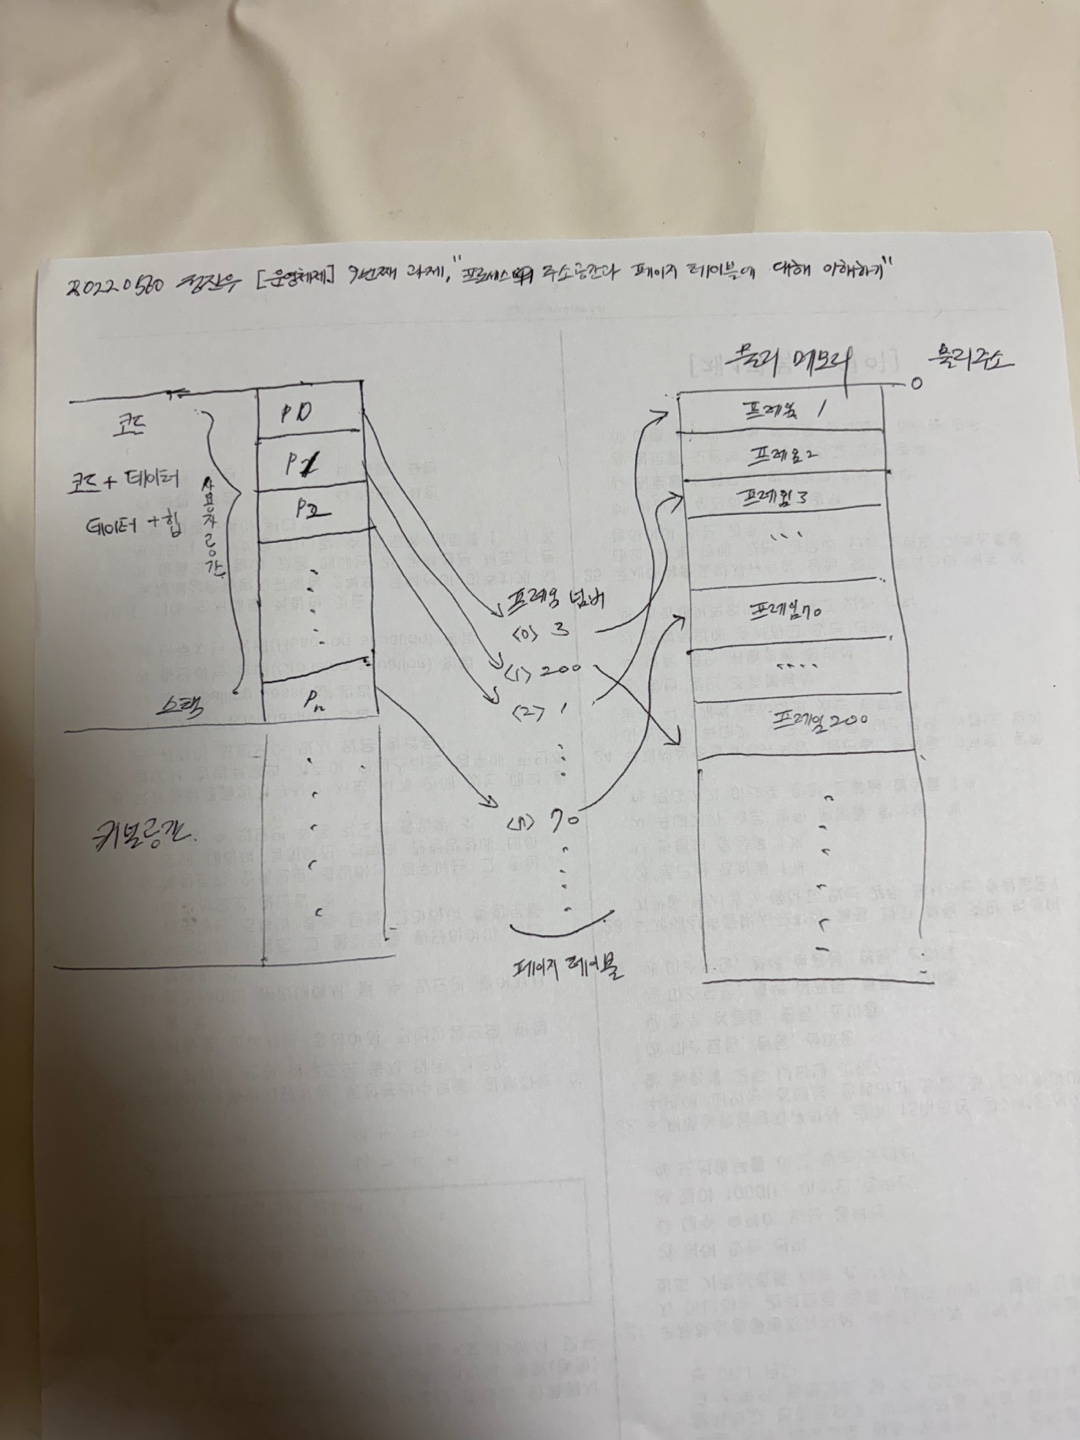 20220560 정찬우 [운영체제] 9번째 과제, "프로세스의 주소공간과 페이지 테이블에 대해 이해하기"
물리 메모리 물리주소
0
코드
코드 + 데이터
데이터 + 힙
사용자 공간
스택
커널공간
P0
P1
P2
Pn
프레임 넘버
<0> 3
<1> 200
<2> 1
<n> 70
페이지 테이블
프레임 1
프레임 2
프레임 3
...
프레임 70
....
프레임 200